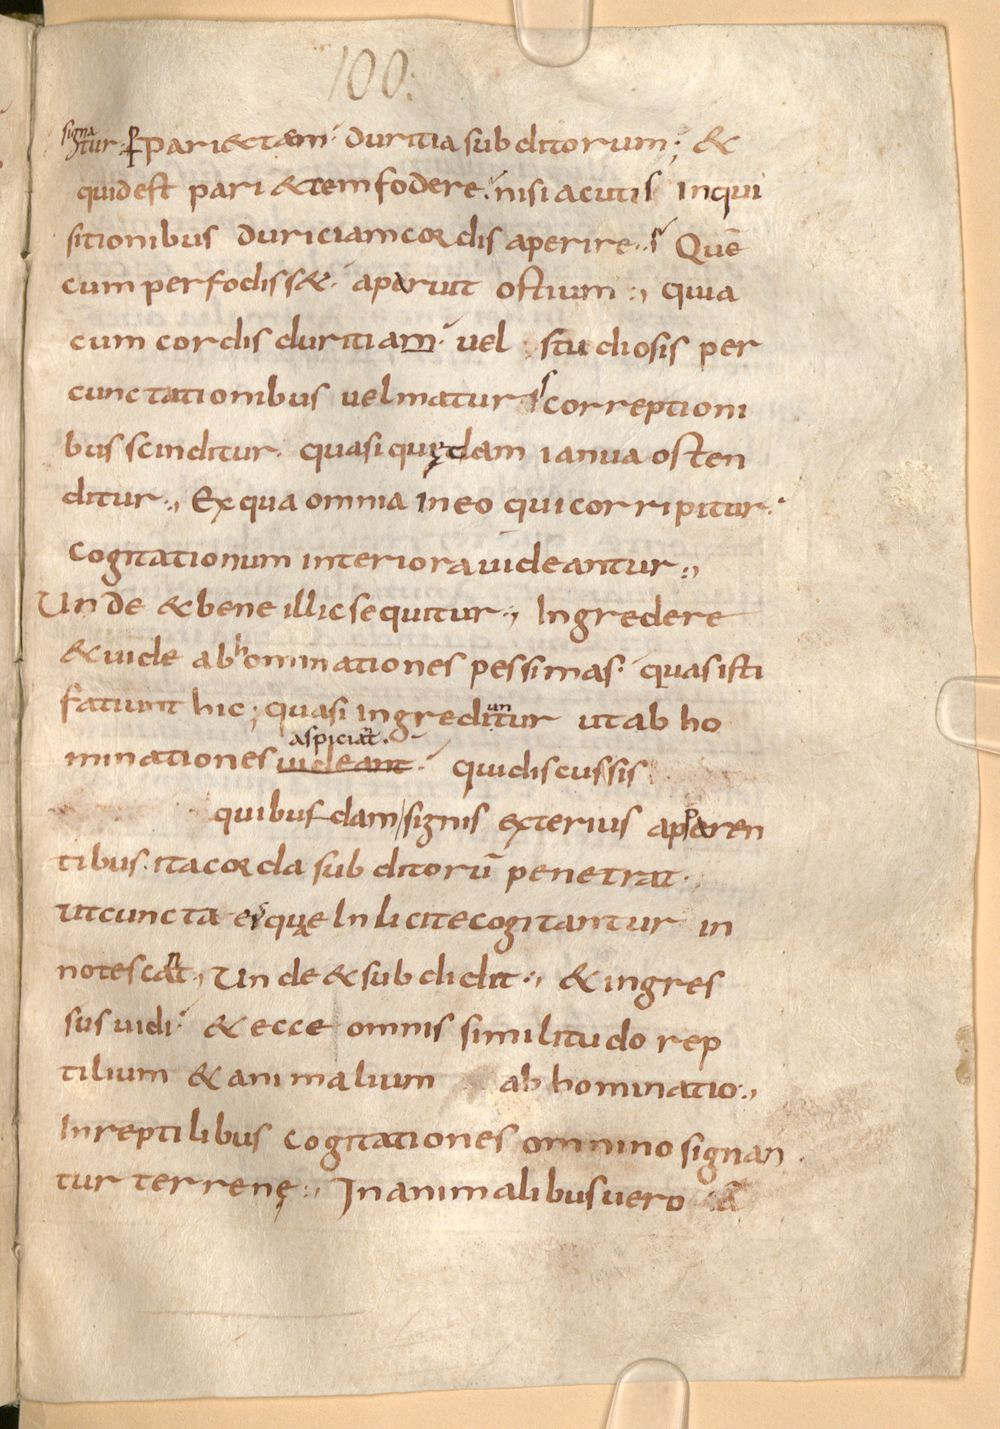 100.
signa
tur. ꝑ pari&em duritia subditorum; &
quid est pari&em fodere. nisi acutis inqui
sitionibus duriciam cordis aperire. Quē
cum perfodiss&. aparuit ostium., quia
cum cordis duritiam. uel studiosis per
cunctationibus uel maturis correptioni
bus scinditur. quasi quędam ianua osten
ditur., Ex qua omnia in eo qui corripitur.
cogitationum interiora uideantur.,
Unde & bene illic sequitur., Ingredere
& uide abhominationes pessimas. quas isti
fatiunt hic; quasi ingreditur ut ab ho
un
aspiciat.
minationes uideant. qui discussis
quibusdam signis exterius apparen
tibus. ita corda subditorū penetrat.
ut cuncta ei quę inlicite cogitantur in
notescant., Unde & subdidit., & ingres
sus uidi. & ecce omnis similitudo rep
tilium & animalium abhominatio.,
In reptilibus cogitationes omnino signan
tur terrenę., In animalibus uero ā